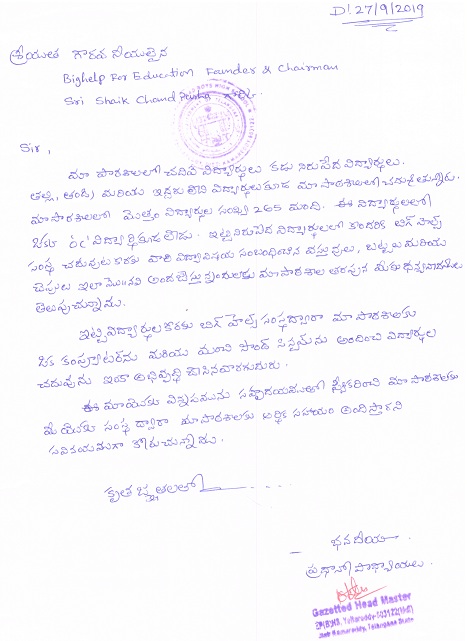 D/. 27/9/2019
శ్రీయుత గౌరవ నీయులైన
Bighelp For Education Founder & Chairman
Sri Shaik Chand Pasha గారికి.
Sir,
మా పాఠశాలలో చదివే విద్యార్థులు కడు నిరుపేద విద్యార్థులు.
తల్లి, తండ్రి మరియు ఇద్దరు లేని విద్యార్థులుకూడ మా పాఠశాలలో చదువుతున్నారు.
మా పాఠశాలలో మొత్తం విద్యార్థుల సంఖ్య 265 మంది. ఈ విద్యార్థులలో
ఒకరు విద్యార్థికూడ ఇట్టి నిరుపేద విద్యార్థులలో కొందరికి బిగ్ హెల్ప్
సంస్థ చదువుల కొరకు వారి విద్యావిషయ సంబంధించిన వస్తువులు, బట్టలు మరియు
చెప్పులు ఇలా అందజేస్తున్నందులకు మా పాఠశాల తరపున మీకు ధన్యవాదములు
తెలుపుచున్నాను.
ఇట్టి విద్యార్థుల కొరకు బిగ్ హెల్ప్ సంస్థద్వారా మా పాఠశాలకు
ఒక కంప్యూటర్‌ను మరియు మంచి సౌండ్ సిస్టమ్‌ను అందించి విద్యార్థుల
చదువును ఇంకా అభివృద్ధి చేసినవారగుదురు.
ఈ మాయొక్క విన్నపమును సహృదయముతో స్వీకరించి మా పాఠశాలకు
మీయొక్క సంస్థ ద్వారా మా పాఠశాలకు ఆర్థిక సహాయం అందిస్తారని
సవినయముగా కోరుచున్నాను.
కృతజ్ఞతలతో
భవదీయ
ప్రధానోపాధ్యాయులు.
Gazetted Head Master
Yellareddy-503122
Kamareddy, Telangana State